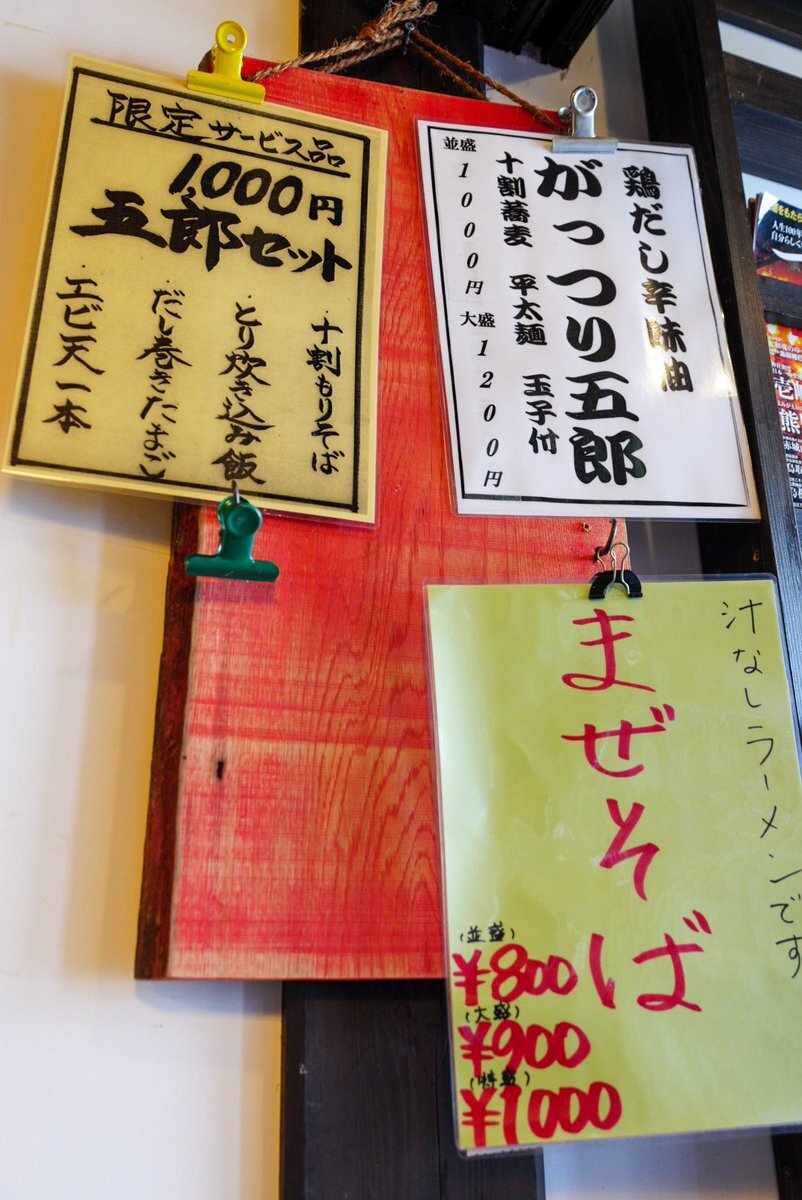 限定サービス品
1,000円
五郎セット
・十割もりそば
・とり炊き込み飯
・だし巻きたまご
・エビ天一本
鶏だし辛味油
がっつり五郎
十割蕎麦 平太麺 玉子付
並盛1000円 大盛1200円
汁なしラーメンです
まぜそば
(並盛)
¥800
(大盛)
¥900
(特盛)
¥1000
人生100年
自分らしく